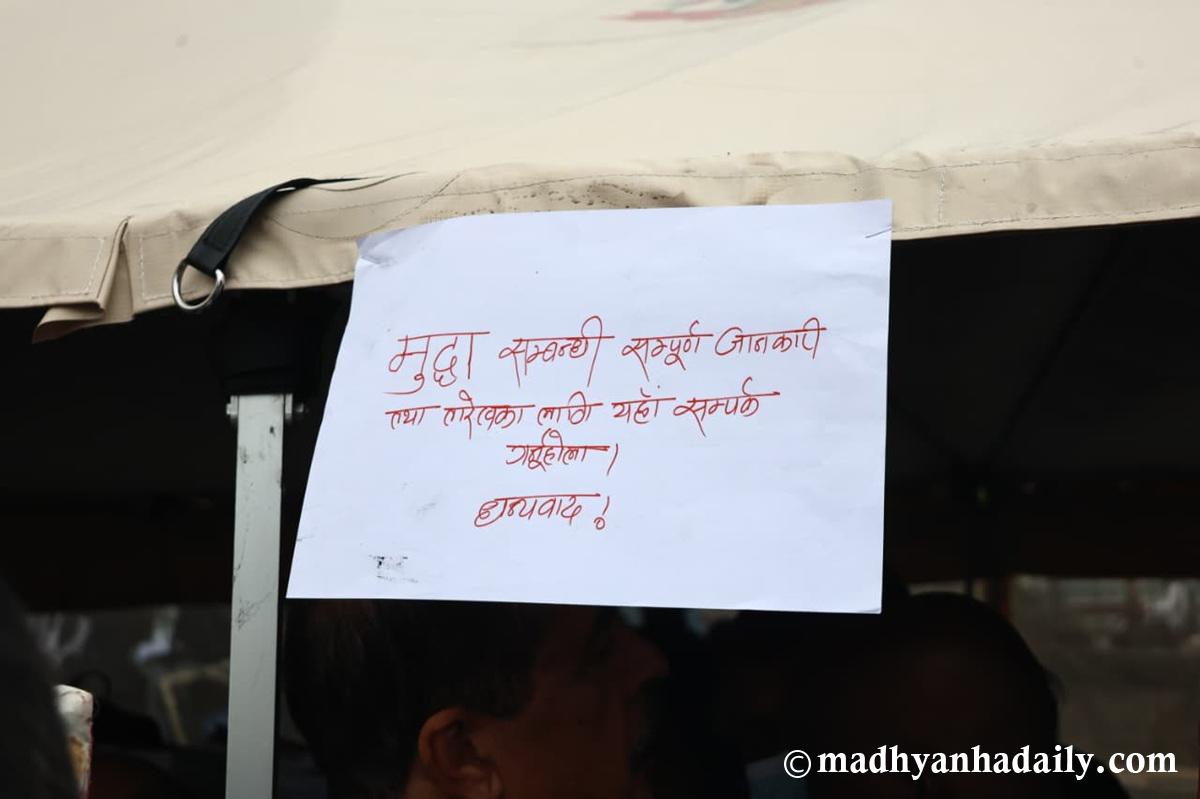 मुद्धा सम्बन्धी सम्पूर्ण जानकारी
तथा तारेखका लागि यहाँ सम्पर्क
गर्नुहोला।
धन्यवाद !
© madhyanhadaily.com